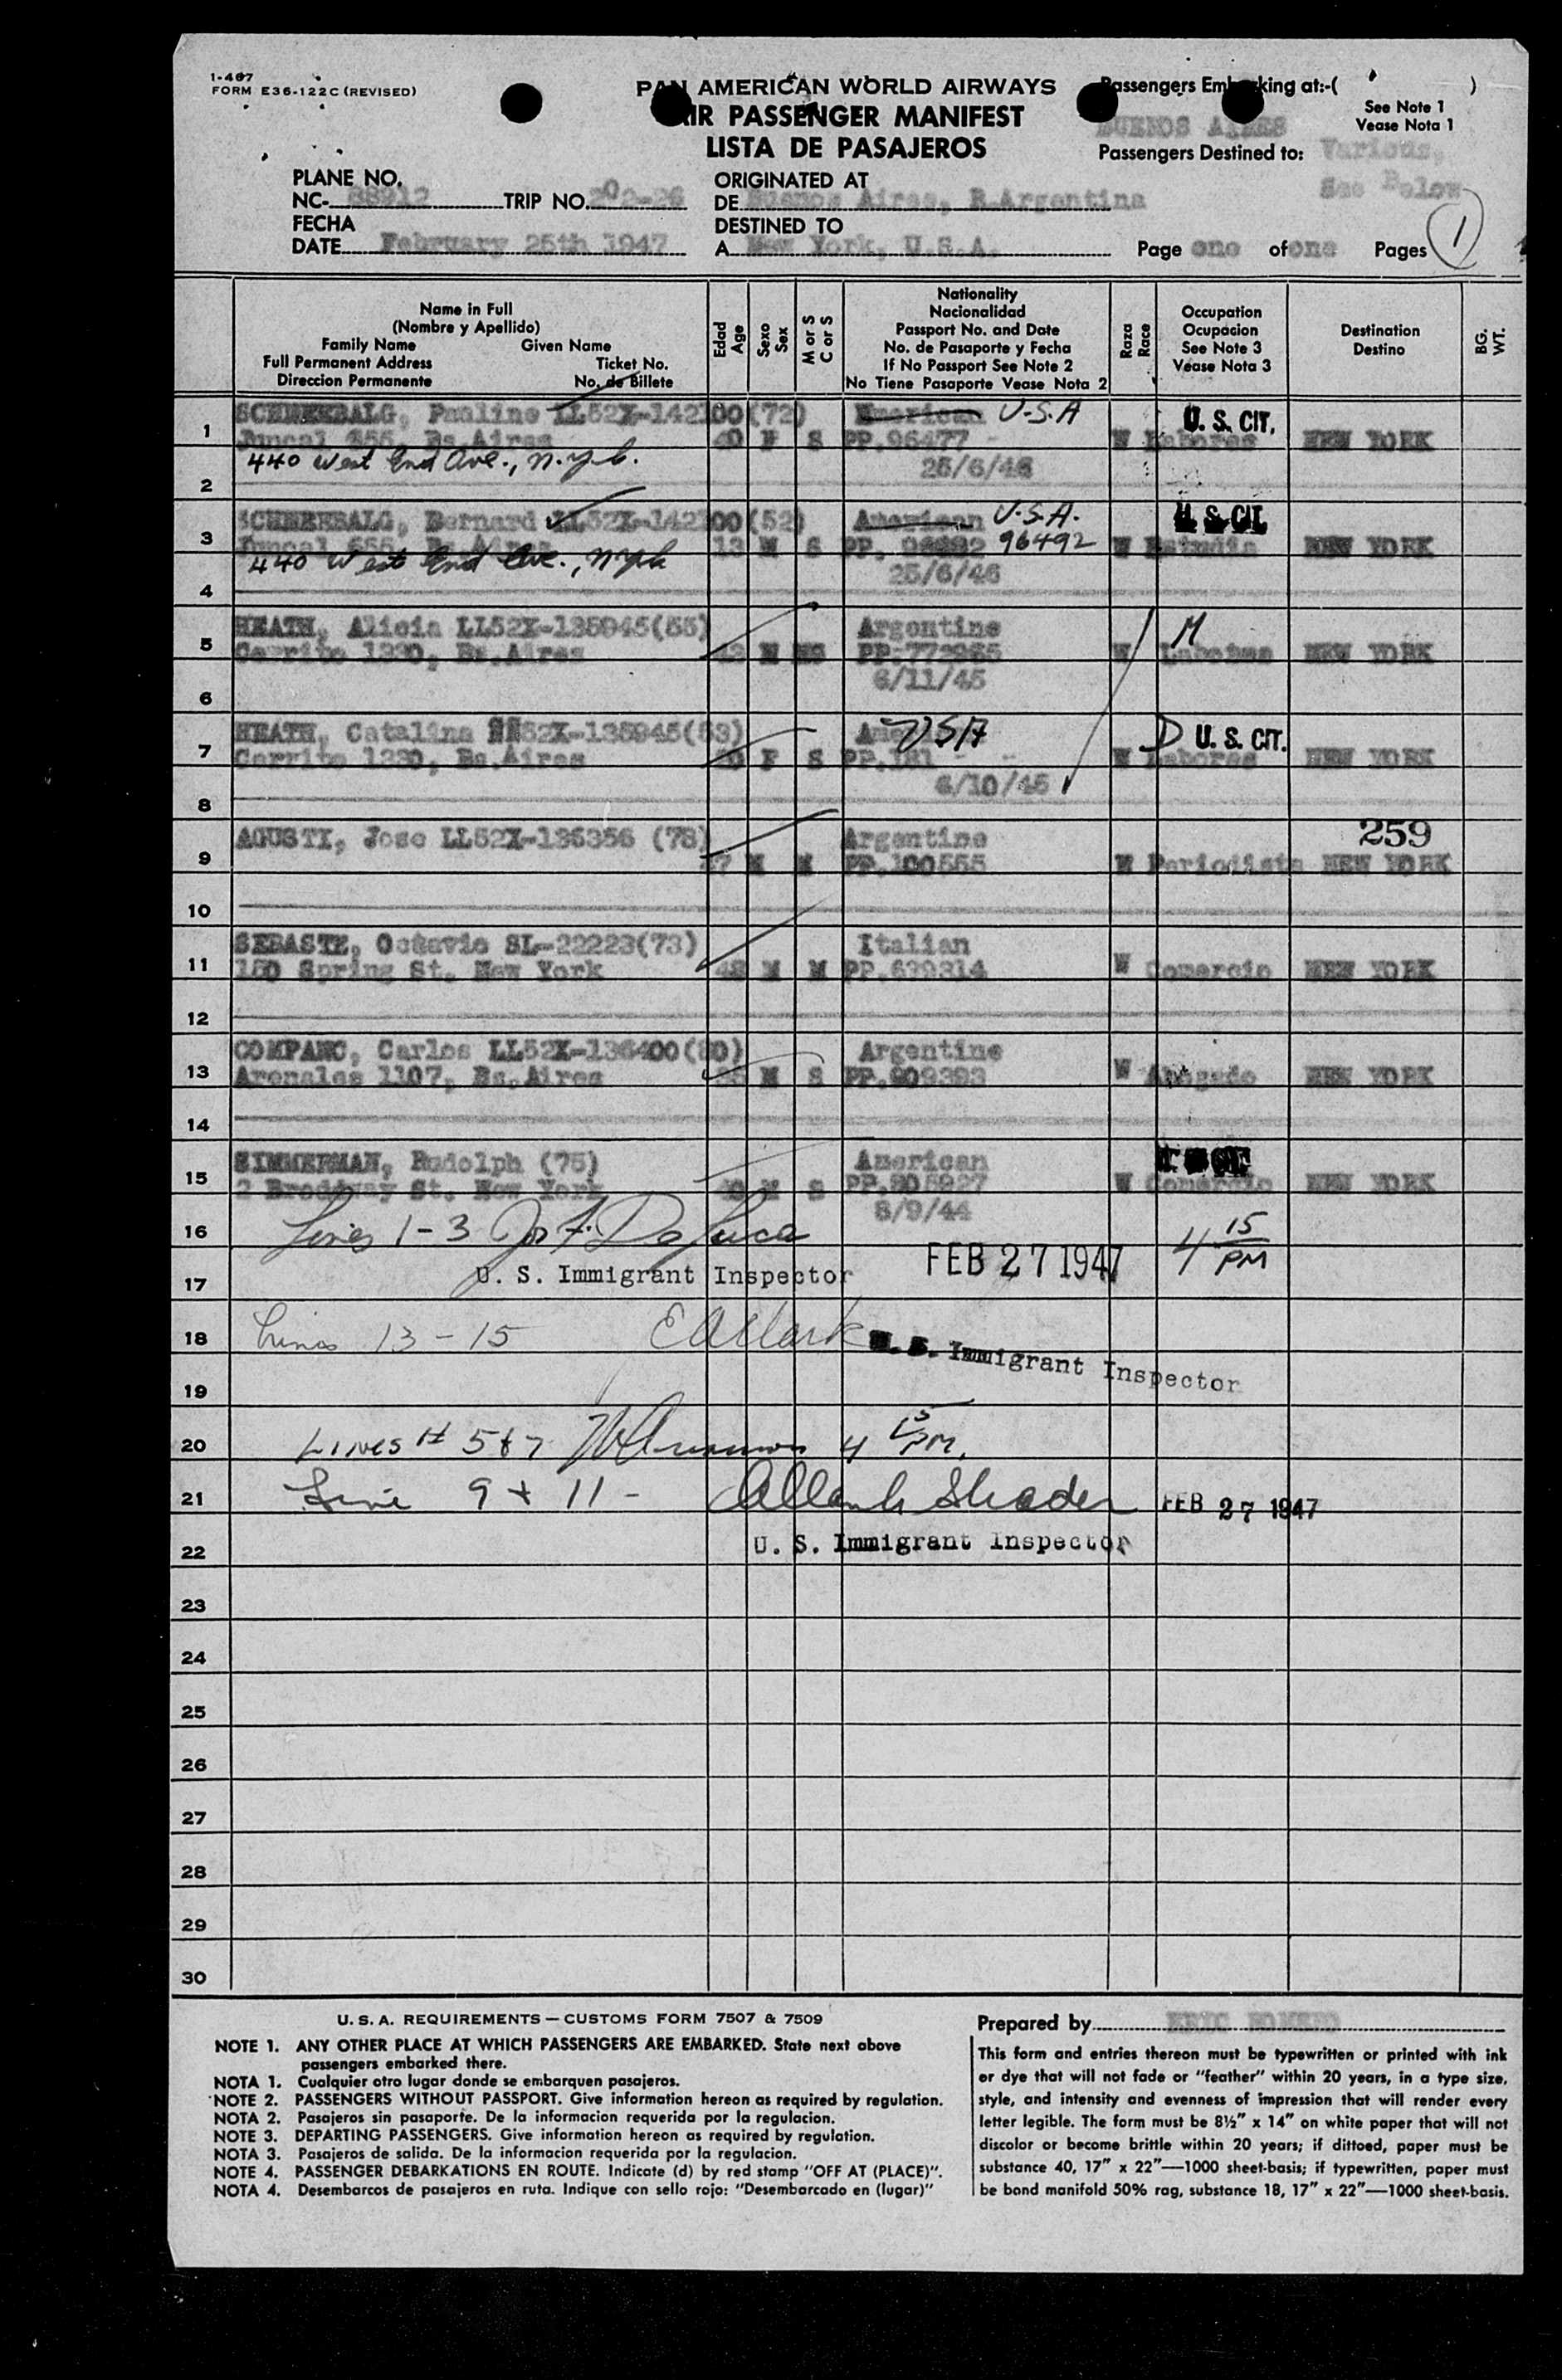 1-467
FORM E36-122C (REVISED)
PAN AMERICAN WORLD AIRWAYS
AIR PASSENGER MANIFEST
LISTA DE PASAJEROS
Passengers Embarking at:-( )
See Note 1
Vease Nota 1
BUENOS AIRES
Passengers Destined to: Various,
See Below
PLANE NO.
NC- 88912 TRIP NO. 202-26
FECHA
DATE February 25th 1947
ORIGINATED AT
DE Buenos Aires, R.Argentina
DESTINED TO
A New York, U.S.A.
Page one of one Pages 1
Name in Full
(Nombre y Apellido)
Family Name Given Name
Full Permanent Address Ticket No.
Direccion Permanente No. de Billete
Edad
Age
Sexo
Sex
M or S
C or S
Nationality
Nacionalidad
Passport No. and Date
No. de Pasaporte y Fecha
If No Passport See Note 2
No Tiene Pasaporte Vease Nota 2
Raza
Race
Occupation
Ocupacion
See Note 3
Vease Nota 3
Destination
Destino
BG.
WT.
SCHNEEBALG, Pauline LL52X-142100(72) American U.S.A U. S. CIT.
1 Juncal 655, Bs.Aires 40 F S PP.96477 W Labores NEW YORK
440 West End Ave., N.Y.C. 25/6/46
2
SCHNEEBALG, Bernard LL52X-142100(52) American U.S.A. U. S. CIT.
3 Juncal 655, Bs.Aires 13 M S PP. 96492 W Estudia NEW YORK
440 West End Ave., NYC 25/6/46
4
HEATH, Alicia LL52X-135945(55) Argentine M
5 Cerrito 1230, Bs.Aires PP.772965 W NEW YORK
6/11/45
6
HEATH, Catalina 52X-135945(53) USA D U. S. CIT.
7 Cerrito 1230, Bs.Aires F S PP.181 W Labores NEW YORK
6/10/45
8
AGUSTI, Jose LL52X-135356 (78) Argentine 259
9 M M PP.100555 W Periodista NEW YORK
10
SEBASTE, Octavio SL-22223(73) Italian
11 150 Spring St. New York 48 M M PP.639314 W Comercio NEW YORK
12
COMPANO, Carlos LL52X-136400(80) Argentine
13 Arenales 1107, Bs.Aires M S PP.909393 W Abogado NEW YORK
14
ZIMMERMAN, Rudolph (75) American
15 2 Broadway St. New York M S W Comercio NEW YORK
8/9/44
16 Lines 1-3 Jos F. De Luca 4 15 PM
17 U. S. Immigrant Inspector FEB 27 1947
18 Lines 13-15 EA Clark U. S. Immigrant Inspector
19
20 Lines # 5 & 7 4 15 PM.
21 Line 9 + 11 - Shader FEB 27 1947
22 U. S. Immigrant Inspector
23
24
25
26
27
28
29
30
U. S. A. REQUIREMENTS — CUSTOMS FORM 7507 & 7509
NOTE 1. ANY OTHER PLACE AT WHICH PASSENGERS ARE EMBARKED. State next above
passengers embarked there.
NOTA 1. Cualquier otro lugar donde se embarquen pasajeros.
NOTE 2. PASSENGERS WITHOUT PASSPORT. Give information hereon as required by regulation.
NOTA 2. Pasajeros sin pasaporte. De la informacion requerida por la regulacion.
NOTE 3. DEPARTING PASSENGERS. Give information hereon as required by regulation.
NOTA 3. Pasajeros de salida. De la informacion requerida por la regulacion.
NOTE 4. PASSENGER DEBARKATIONS EN ROUTE. Indicate (d) by red stamp "OFF AT (PLACE)".
NOTA 4. Desembarcos de pasajeros en ruta. Indique con sello rojo: "Desembarcado en (lugar)"
Prepared by ERIC ROMERO
This form and entries thereon must be typewritten or printed with ink
or dye that will not fade or "feather" within 20 years, in a type size,
style, and intensity and evenness of impression that will render every
letter legible. The form must be 8½" x 14" on white paper that will not
discolor or become brittle within 20 years; if dittoed, paper must be
substance 40, 17" x 22"—1000 sheet-basis; if typewritten, paper must
be bond manifold 50% rag, substance 18, 17" x 22"—1000 sheet-basis.